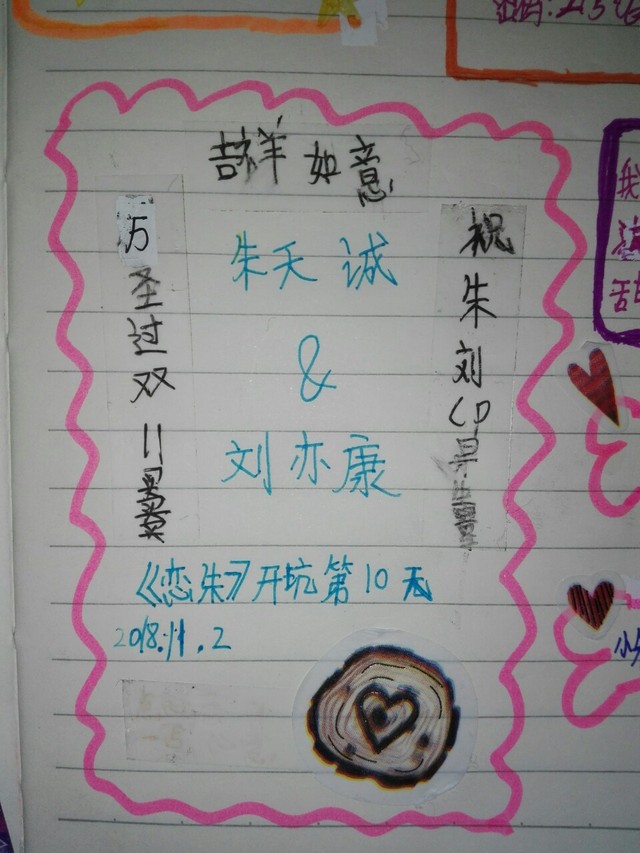 吉祥如意
祝朱刘CP
万圣过双11
朱天诚
&
刘亦康
《恋朱》开坑第10天
2018.11.2